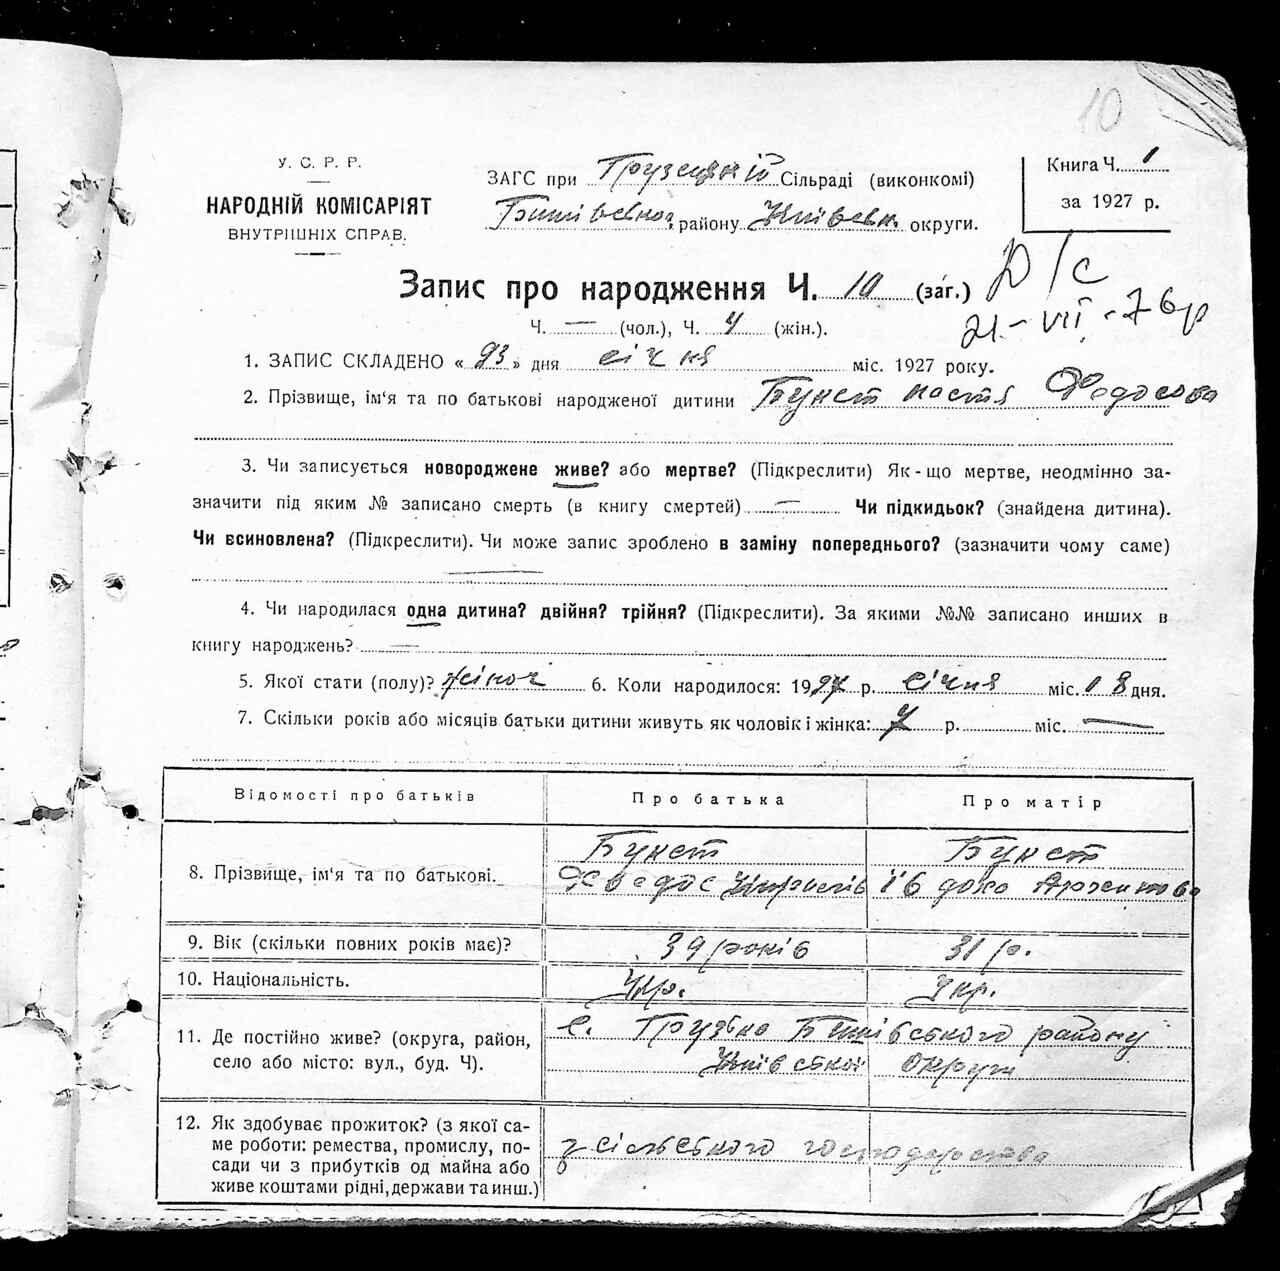 10
У. С. Р. Р.
НАРОДНІЙ КОМІСАРІЯТ
ВНУТРІШНІХ СПРАВ.
ЗАГС при Грузецькій Сільраді (виконкомі)
Бишівськог. району Київськ. округи.
Книга Ч. 1
за 1927 р.
Запис про народження Ч. 10 (заг.)
Ч. — (чол.), Ч. 4 (жін.).
21-VII-76р
1. ЗАПИС СКЛАДЕНО « 23 » дня січня міс. 1927 року.
2. Прізвище, ім'я та по батькові народженої дитини Бунст Настя Федосова
3. Чи записується новороджене живе? або мертве? (Підкреслити) Як-що мертве, неодмінно за-
значити під яким № записано смерть (в книгу смертей) — Чи підкидьок? (знайдена дитина).
Чи всиновлена? (Підкреслити). Чи може запис зроблено в заміну попереднього? (зазначити чому саме)
4. Чи народилася одна дитина? двійня? трійня? (Підкреслити). За якими №№ записано инших в
книгу народжень? —
5. Якої стати (полу)? жіноч 6. Коли народилося: 1927 р. січня міс. 18 дня.
7. Скільки років або місяців батьки дитини живуть як чоловік і жінка: 7 р. міс. —
Відомості про батьків
Про батька
Про матір
8. Прізвище, ім'я та по батькові.
Бунст
Хведос
Бунст
Івдоха
9. Вік (скільки повних років має)?
39 років
31 р.
10. Національність.
Укр.
Укр.
11. Де постійно живе? (округа, район,
село або місто: вул., буд. Ч).
с. Грузьке Бишівського району
Київської Округи
12. Як здобуває прожиток? (з якої са-
ме роботи: ремества, промислу, по-
сади чи з прибутків од майна або
живе коштами рідні, держави та инш.)
з сільського господарства